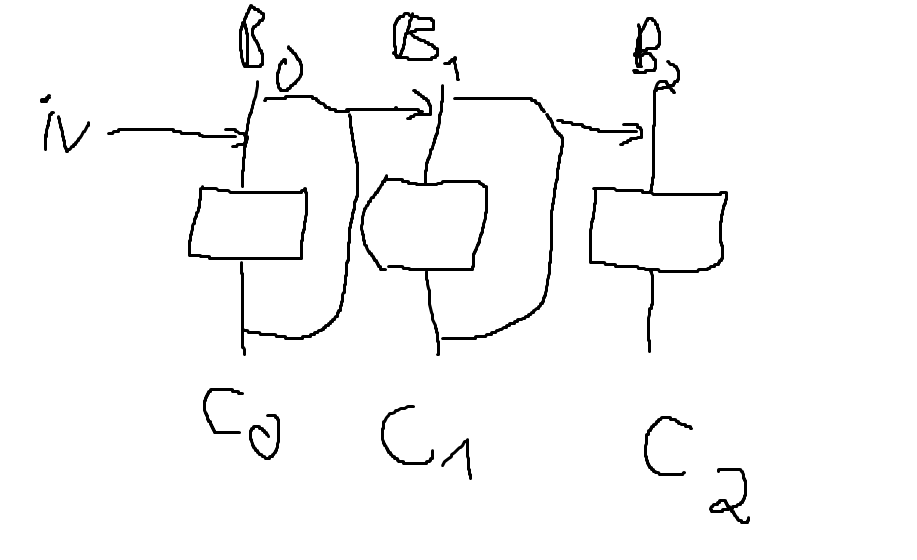 B0 B1 B2
iv
C0 C1 C2